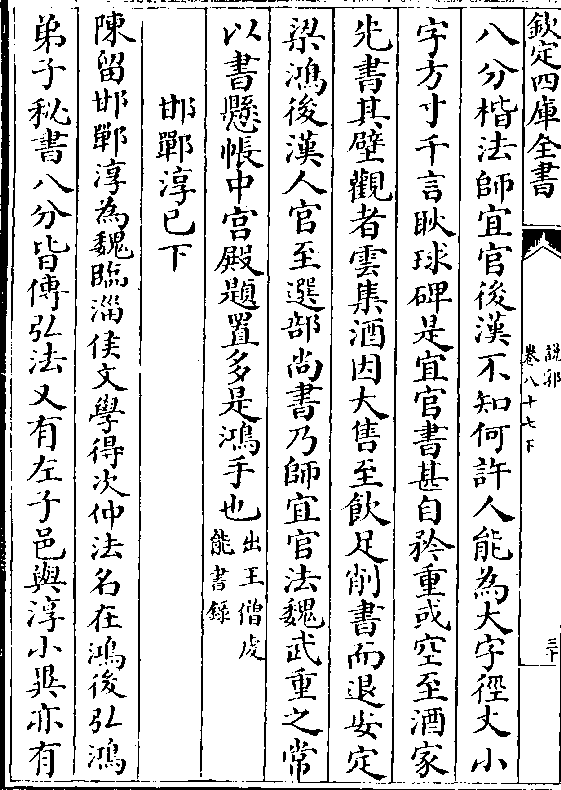 欽定四庫全書
說郛
卷八十七下
三十
八分楷法師宜官後漢不知何許人能為大字徑丈小
字方寸千言耿球碑是宜官書甚自矜重或空至酒家
先書其壁觀者雲集酒因大售至飲足削書而退安定
梁鴻後漢人官至選部尚書乃師宜官法魏武重之常
以書懸帳中宫殿題置多是鴻手也出王僧䖍
能書錄
邯鄲淳已下
陳留邯鄲淳為魏臨淄侯文學得次仲法名在鴻後弘鴻
弟子秘書八分皆傳弘法又有左子邑與淳小異亦有